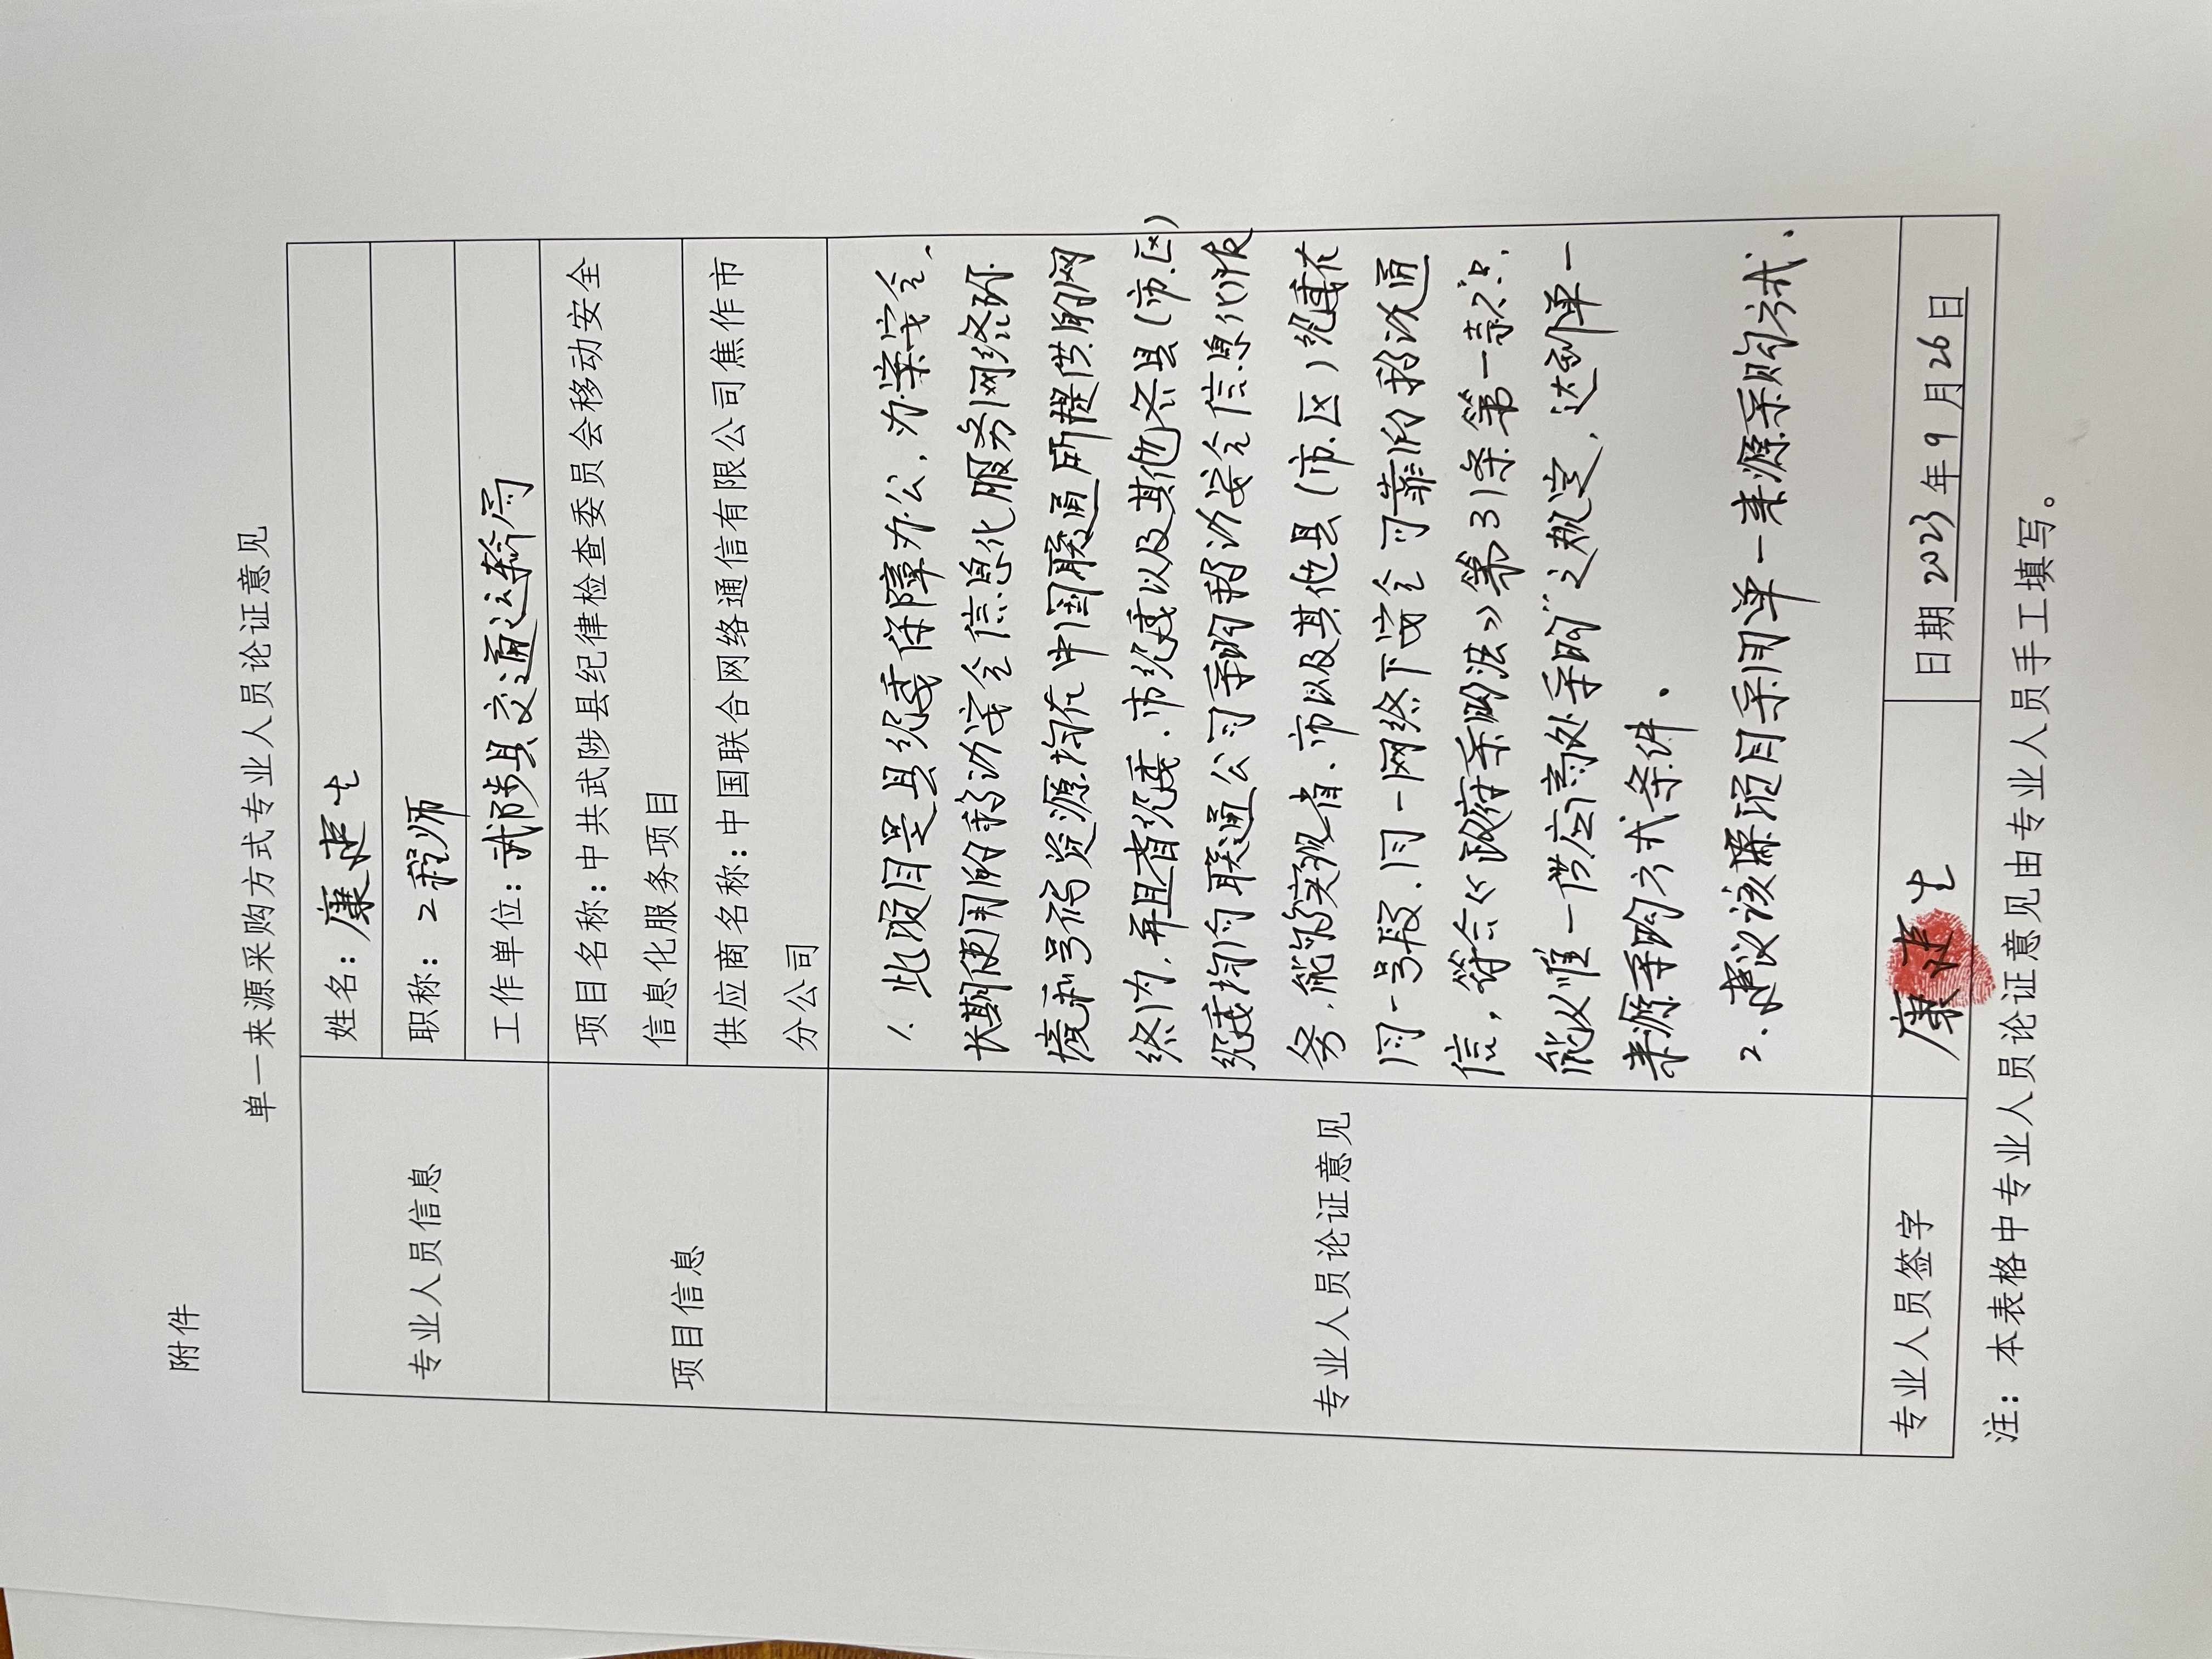 附件
单一来源采购方式专业人员论证意见
专业人员信息
姓名：康建生
职称：工程师
工作单位：武陟县交通运输局
项目信息
项目名称：中共武陟县纪律检查委员会移动安全
信息化服务项目
供应商名称：中国联合网络通信有限公司焦作市
分公司
专业人员论证意见
1. 此项目是县纪委保障办公，办案安全，
长期使用的移动安全信息化服务网络环
境和号码资源均在中国联通所提供的网
络内，并且省纪委、市纪委以及其他各县（市.区）
纪委均向联通公司采购移动安全信息化服
务，能够实现省、市以及其他县（市.区）纪委在
同一号段.同一网络下安全可靠的移动通
信，符合《政府采购法》第31条第一款“只
能从唯一供应商处采购”之规定，达到单一
来源采购方式条件。
2. 建议该项目采用单一来源采购方式.
专业人员签字
康建生
日期 2023年9月26日
注：本表格中专业人员论证意见由专业人员手工填写。